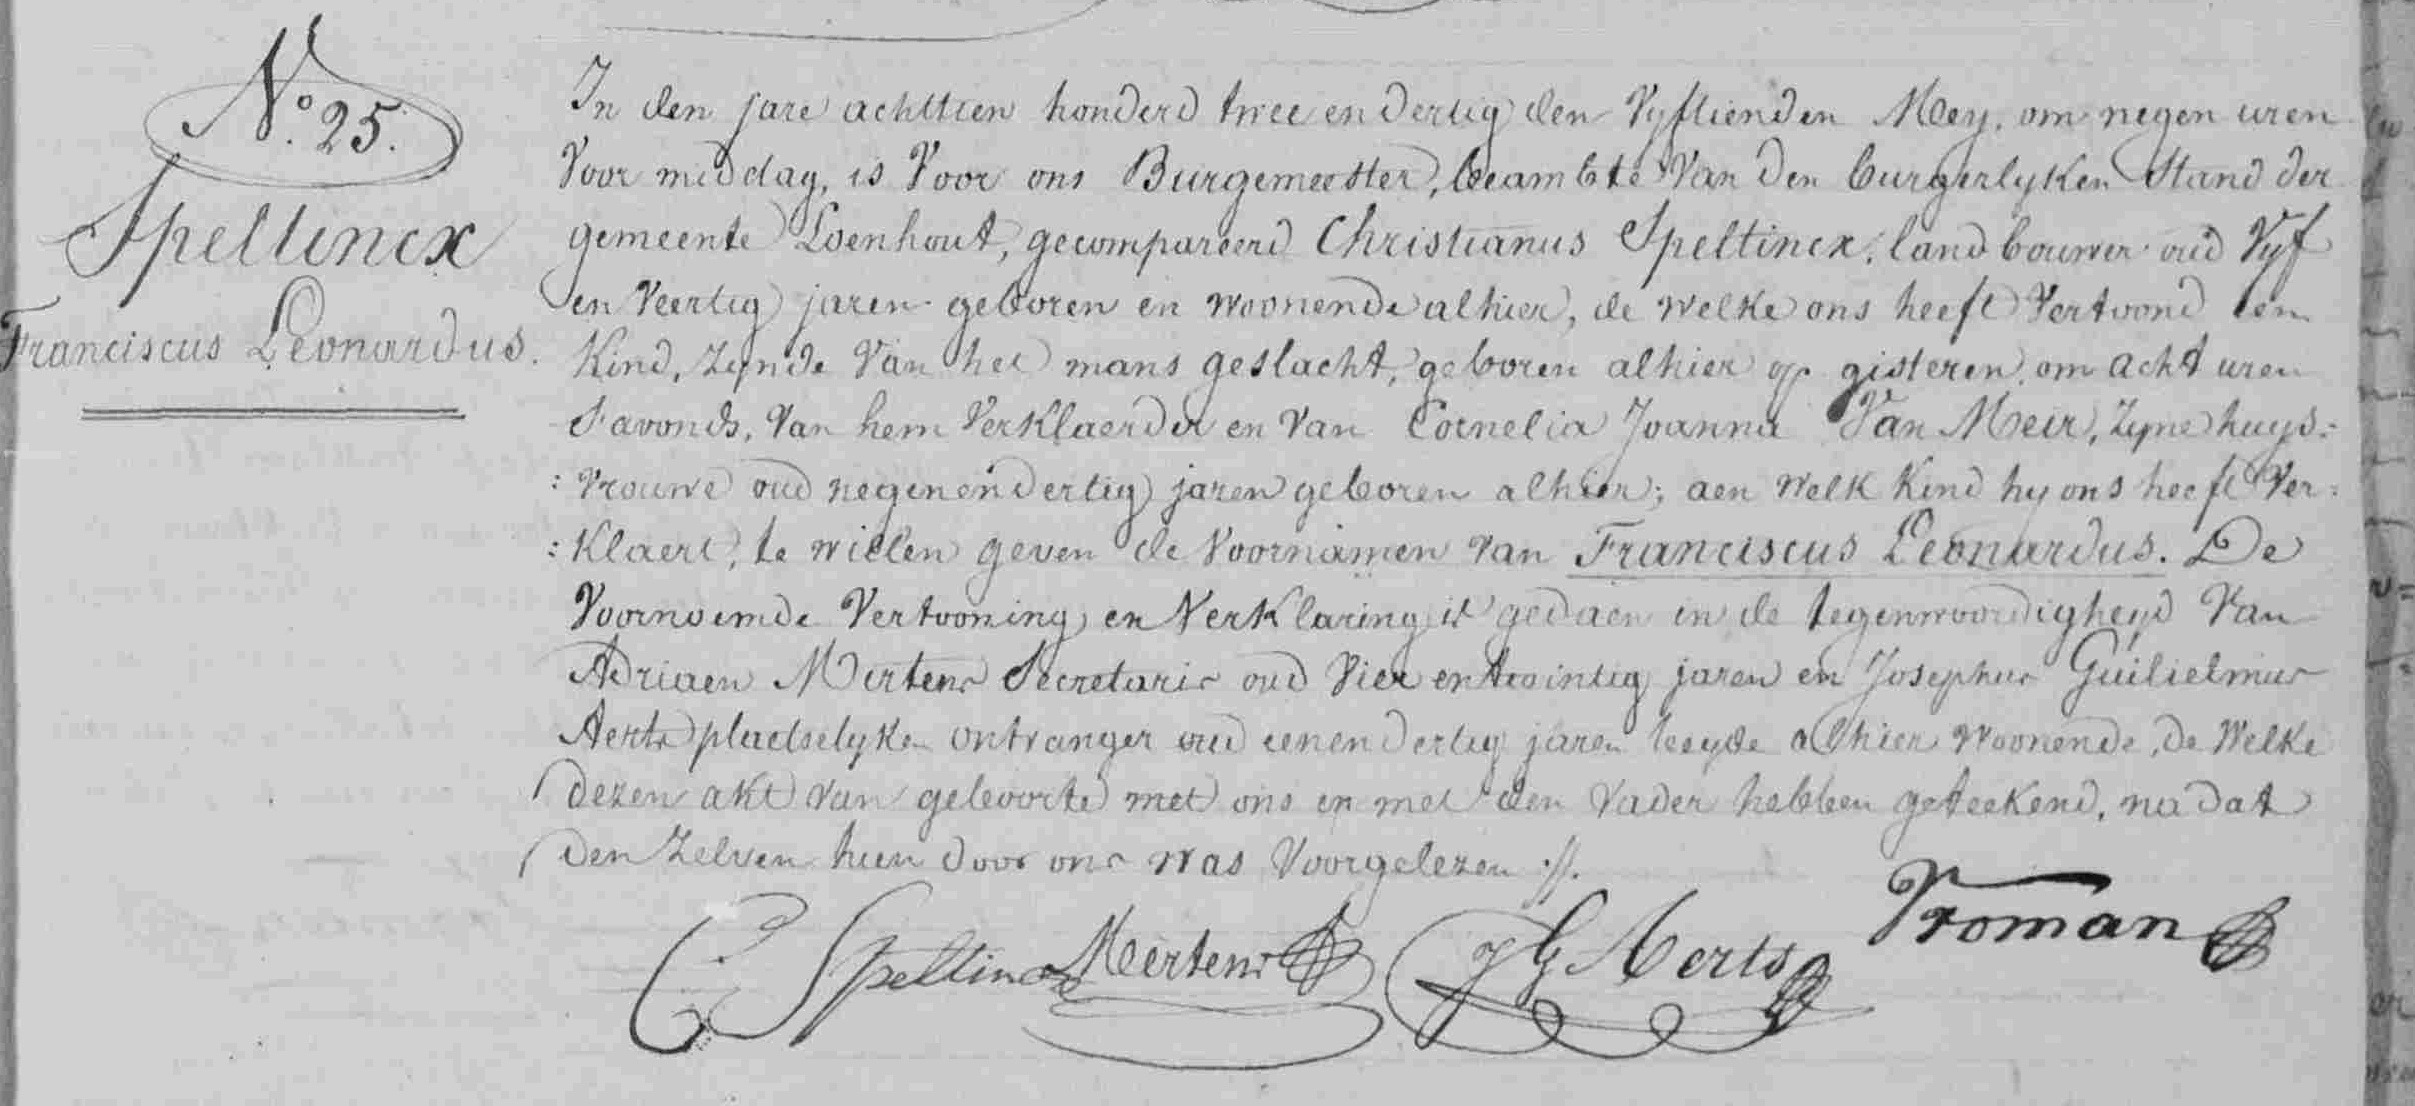 N.º 25.
Speltincx
Franciscus Leonardus.
In den jare achttien honderd twee en dertig den Vyftienden Mey, om negen uren
Voor middag, is Voor ons Burgemeester, beambte Van den burgerlyken Stand der
gemeente Loenhout, gecompareerd Christianus Speltincx, landbouwer oud Vyf
en Veertig jaren geboren en woonende alhier, de welke ons heeft Vertoond een
Kind, zynde Van het mans geslacht, geboren alhier op gisteren, om acht uren
S'avonds, Van hem Verklaerder en Van Cornelia Joanna Van Meir, Zyne huys:
:Vrouwe oud negenendertig jaren geboren alhier; aen welk Kind hy ons heeft Ver:
:Klaert, te willen geven de Voornamen van Franciscus Leonardus. De
Voornoemde Vertooning en Verklaring is gedaen in de tegenwoordigheyd Van
Adriaen Mertens Secretaris oud Vier entwintig jaren en Josephus Guilielmus
Aerts pladselyken ontvanger oud eenendertig jaren beyde alhier woonende, de Welke
dezen akt van geboorte met ons en met den Vader hebben geteekend, na dat
den zelven hun door ons was Voorgelezen ://.
C Speltincx Mertens J G Aerts Vroman